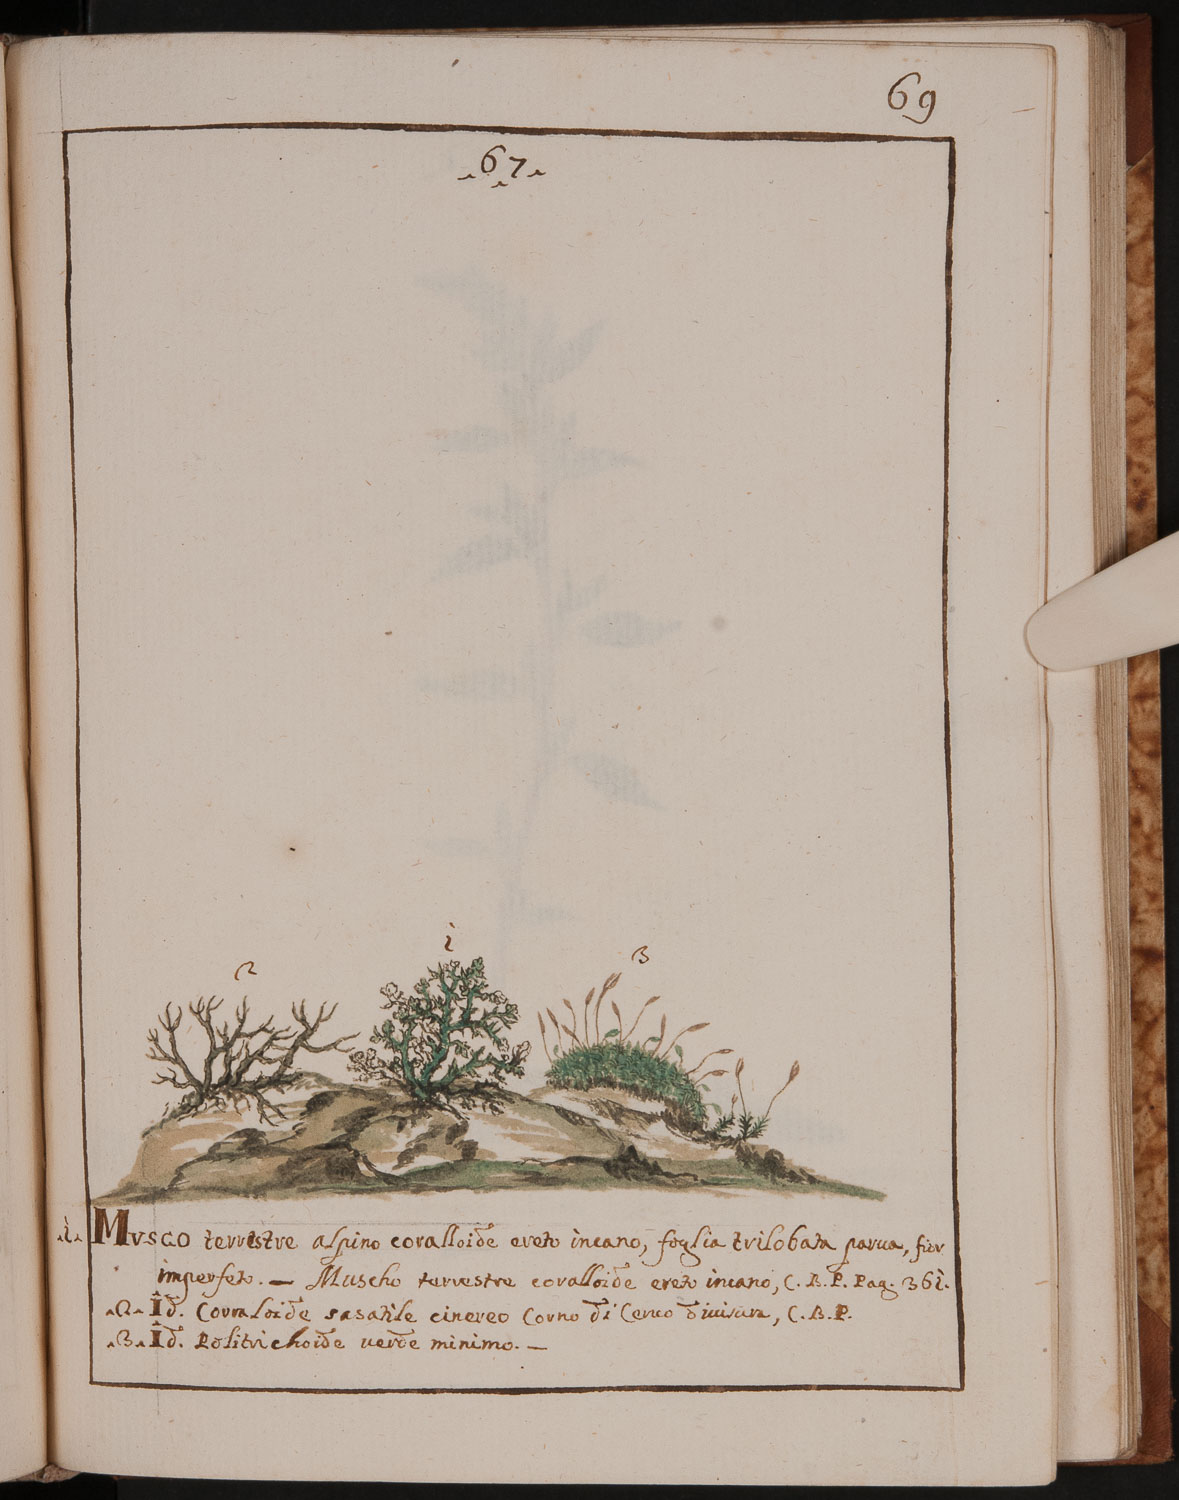 69
67
1
2
3
.1. Musco terrestre alpino coralloide ereto incano, foglia trilobata parua, fior
imperfeto. — Muscho terrestre coralloide ereto incano, C. B. P. Pag. 361.
.2. Id. Corraloide sasatile cinereo Corno di Ceruo diuisura, C. B. P.
.3. Id. Politrichoide uerde minimo. —